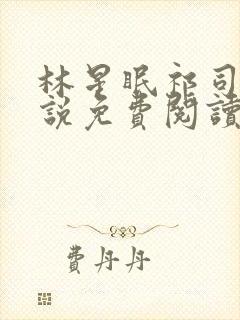 林星眠祁司
說免費閱讀
費丹丹